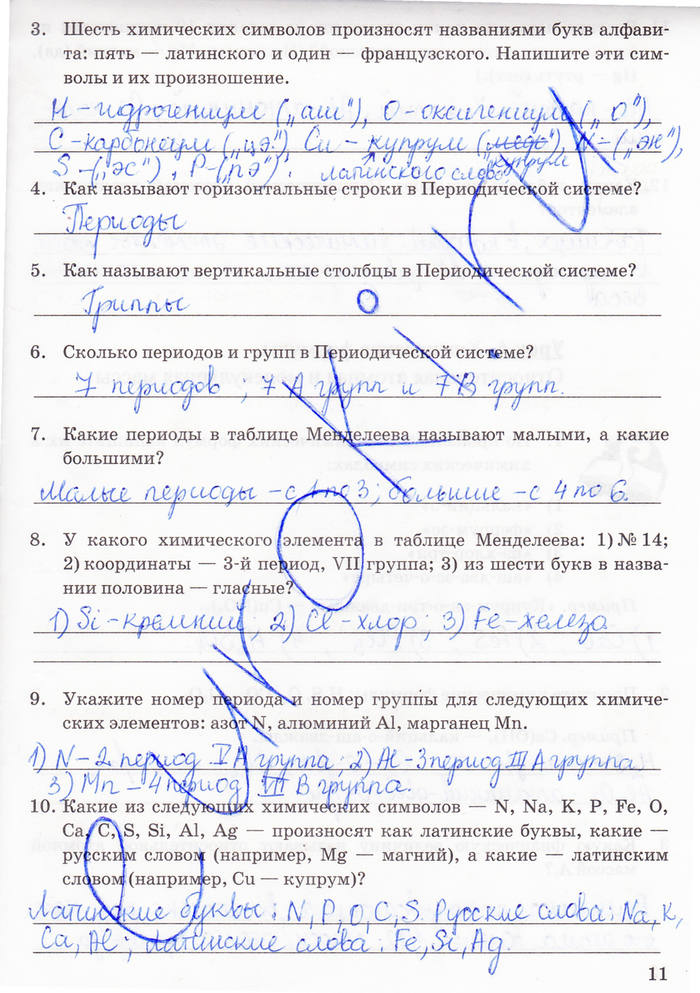 3. Шесть химических символов произносят названиями букв алфави-
та: пять — латинского и один — французского. Напишите эти сим-
волы и их произношение.
H - гидрогениум („аш"), O - оксигениум („O"),
C - карбонеум („цэ"), Cu - купрум (медь), N - („эн"),
S - („эс"), P - („пэ"). латинского слово купрум
4. Как называют горизонтальные строки в Периодической системе?
Периоды
5. Как называют вертикальные столбцы в Периодической системе?
Группы
6. Сколько периодов и групп в Периодической системе?
7 периодов ; 7 A групп и 7 B групп.
7. Какие периоды в таблице Менделеева называют малыми, а какие
большими?
Малые периоды - с 1 по 3; большие - с 4 по 6.
8. У какого химического элемента в таблице Менделеева: 1) № 14;
2) координаты — 3-й период, VII группа; 3) из шести букв в назва-
нии половина — гласные?
1) Si - кремний; 2) Cl - хлор; 3) Fe - железа
9. Укажите номер периода и номер группы для следующих химиче-
ских элементов: азот N, алюминий Al, марганец Mn.
1) N - 2 период V A группа; 2) Al - 3 период III A группа
3) Mn - 4 период VII B группа.
10. Какие из следующих химических символов — N, Na, K, P, Fe, O,
Ca, C, S, Si, Al, Ag — произносят как латинские буквы, какие —
русским словом (например, Mg — магний), а какие — латинским
словом (например, Cu — купрум)?
Латинские буквы: N, P, O, C, S. Русские слова: Na, K,
Ca, Al; Латинские слова: Fe, Si, Ag.
11